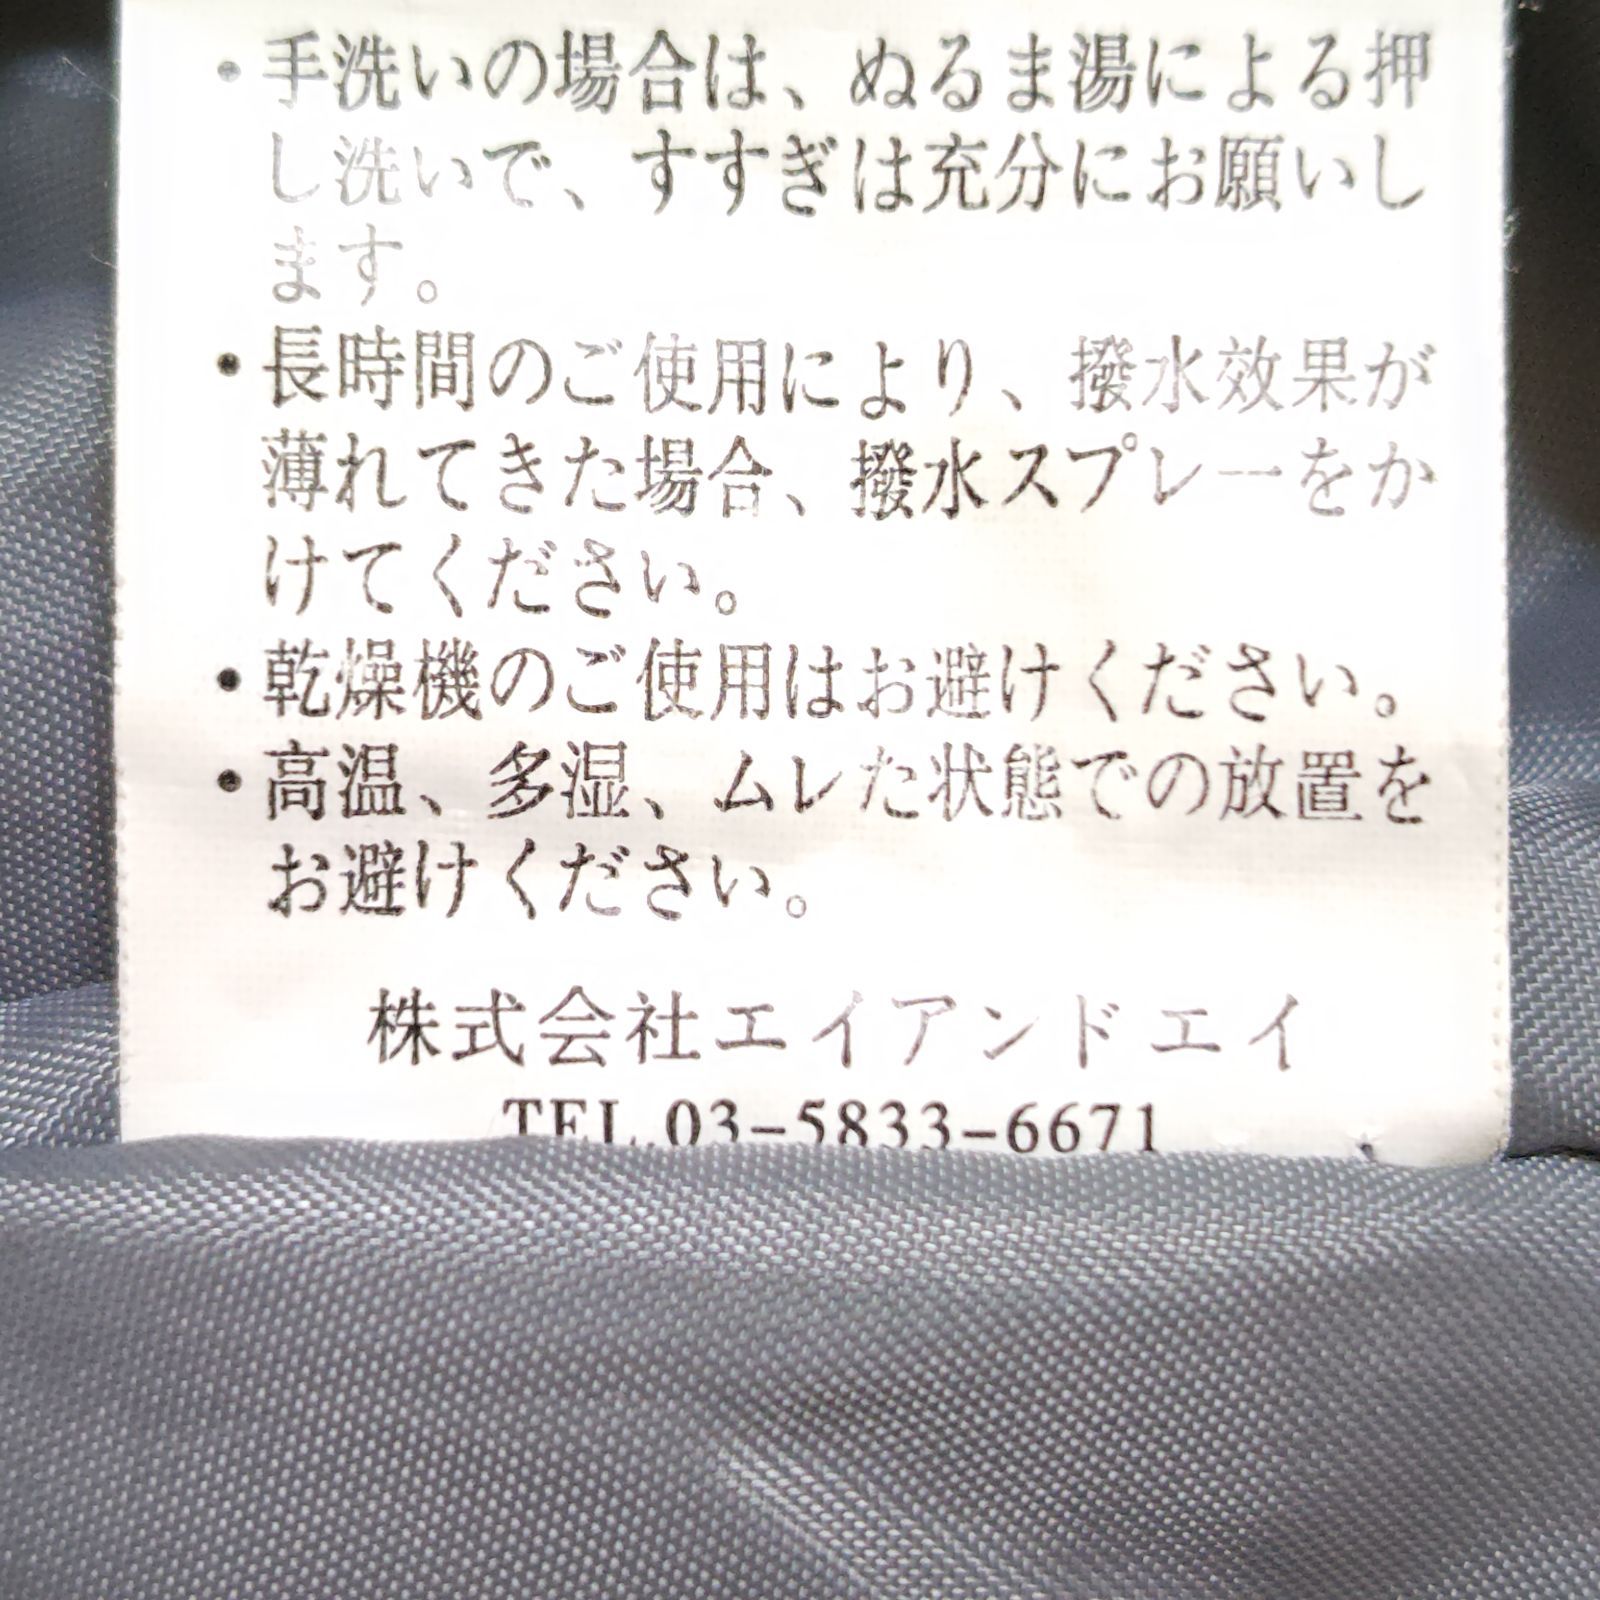 ・手洗いの場合は、ぬるま湯による押
し洗いで、すすぎは充分にお願いし
ます。
・長時間のご使用により、撥水効果が
薄れてきた場合、撥水スプレーをか
けてください。
・乾燥機のご使用はお避けください。
・高温、多湿、ムレた状態での放置を
お避けください。
株式会社エイアンドエイ
TEL.03-5833-6671